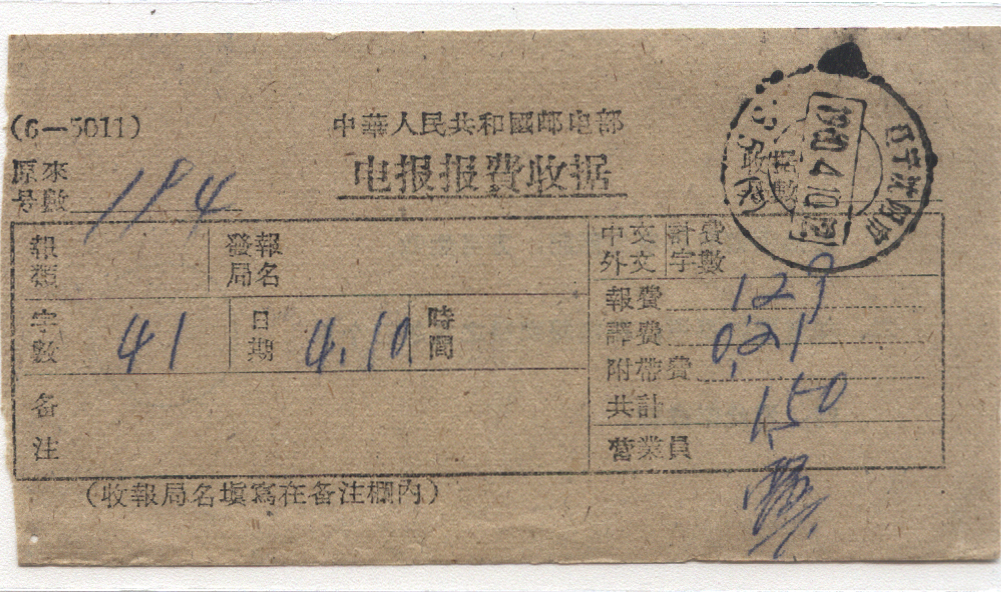 (6—5011)
中華人民共和國邮电部
电报报費收据
原來
号數 194
收據
号數
報類
發報局名
中文 計費
外文 字數
報費 1.29
字數 41
日期 4.10
時間
譯費 0.21
附帶費
共計 1.50
备注
营業員
(收報局名填寫在备注欄內)